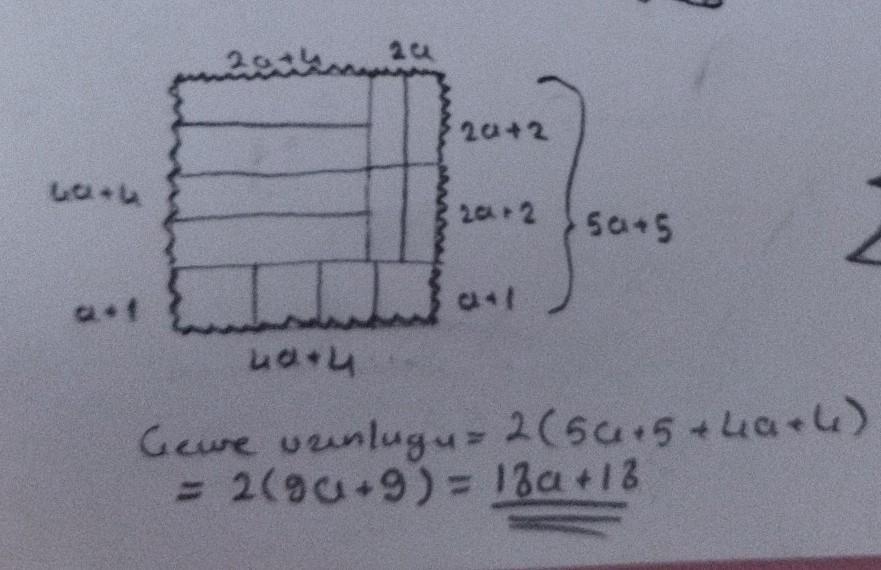 2a+4 2a
2a+2
4a+4
2a+2
5a+5
a+1
a+1
4a+4
Çevre uzunluğu = 2(5a+5+4a+4)
= 2(9a+9) = 18a+18